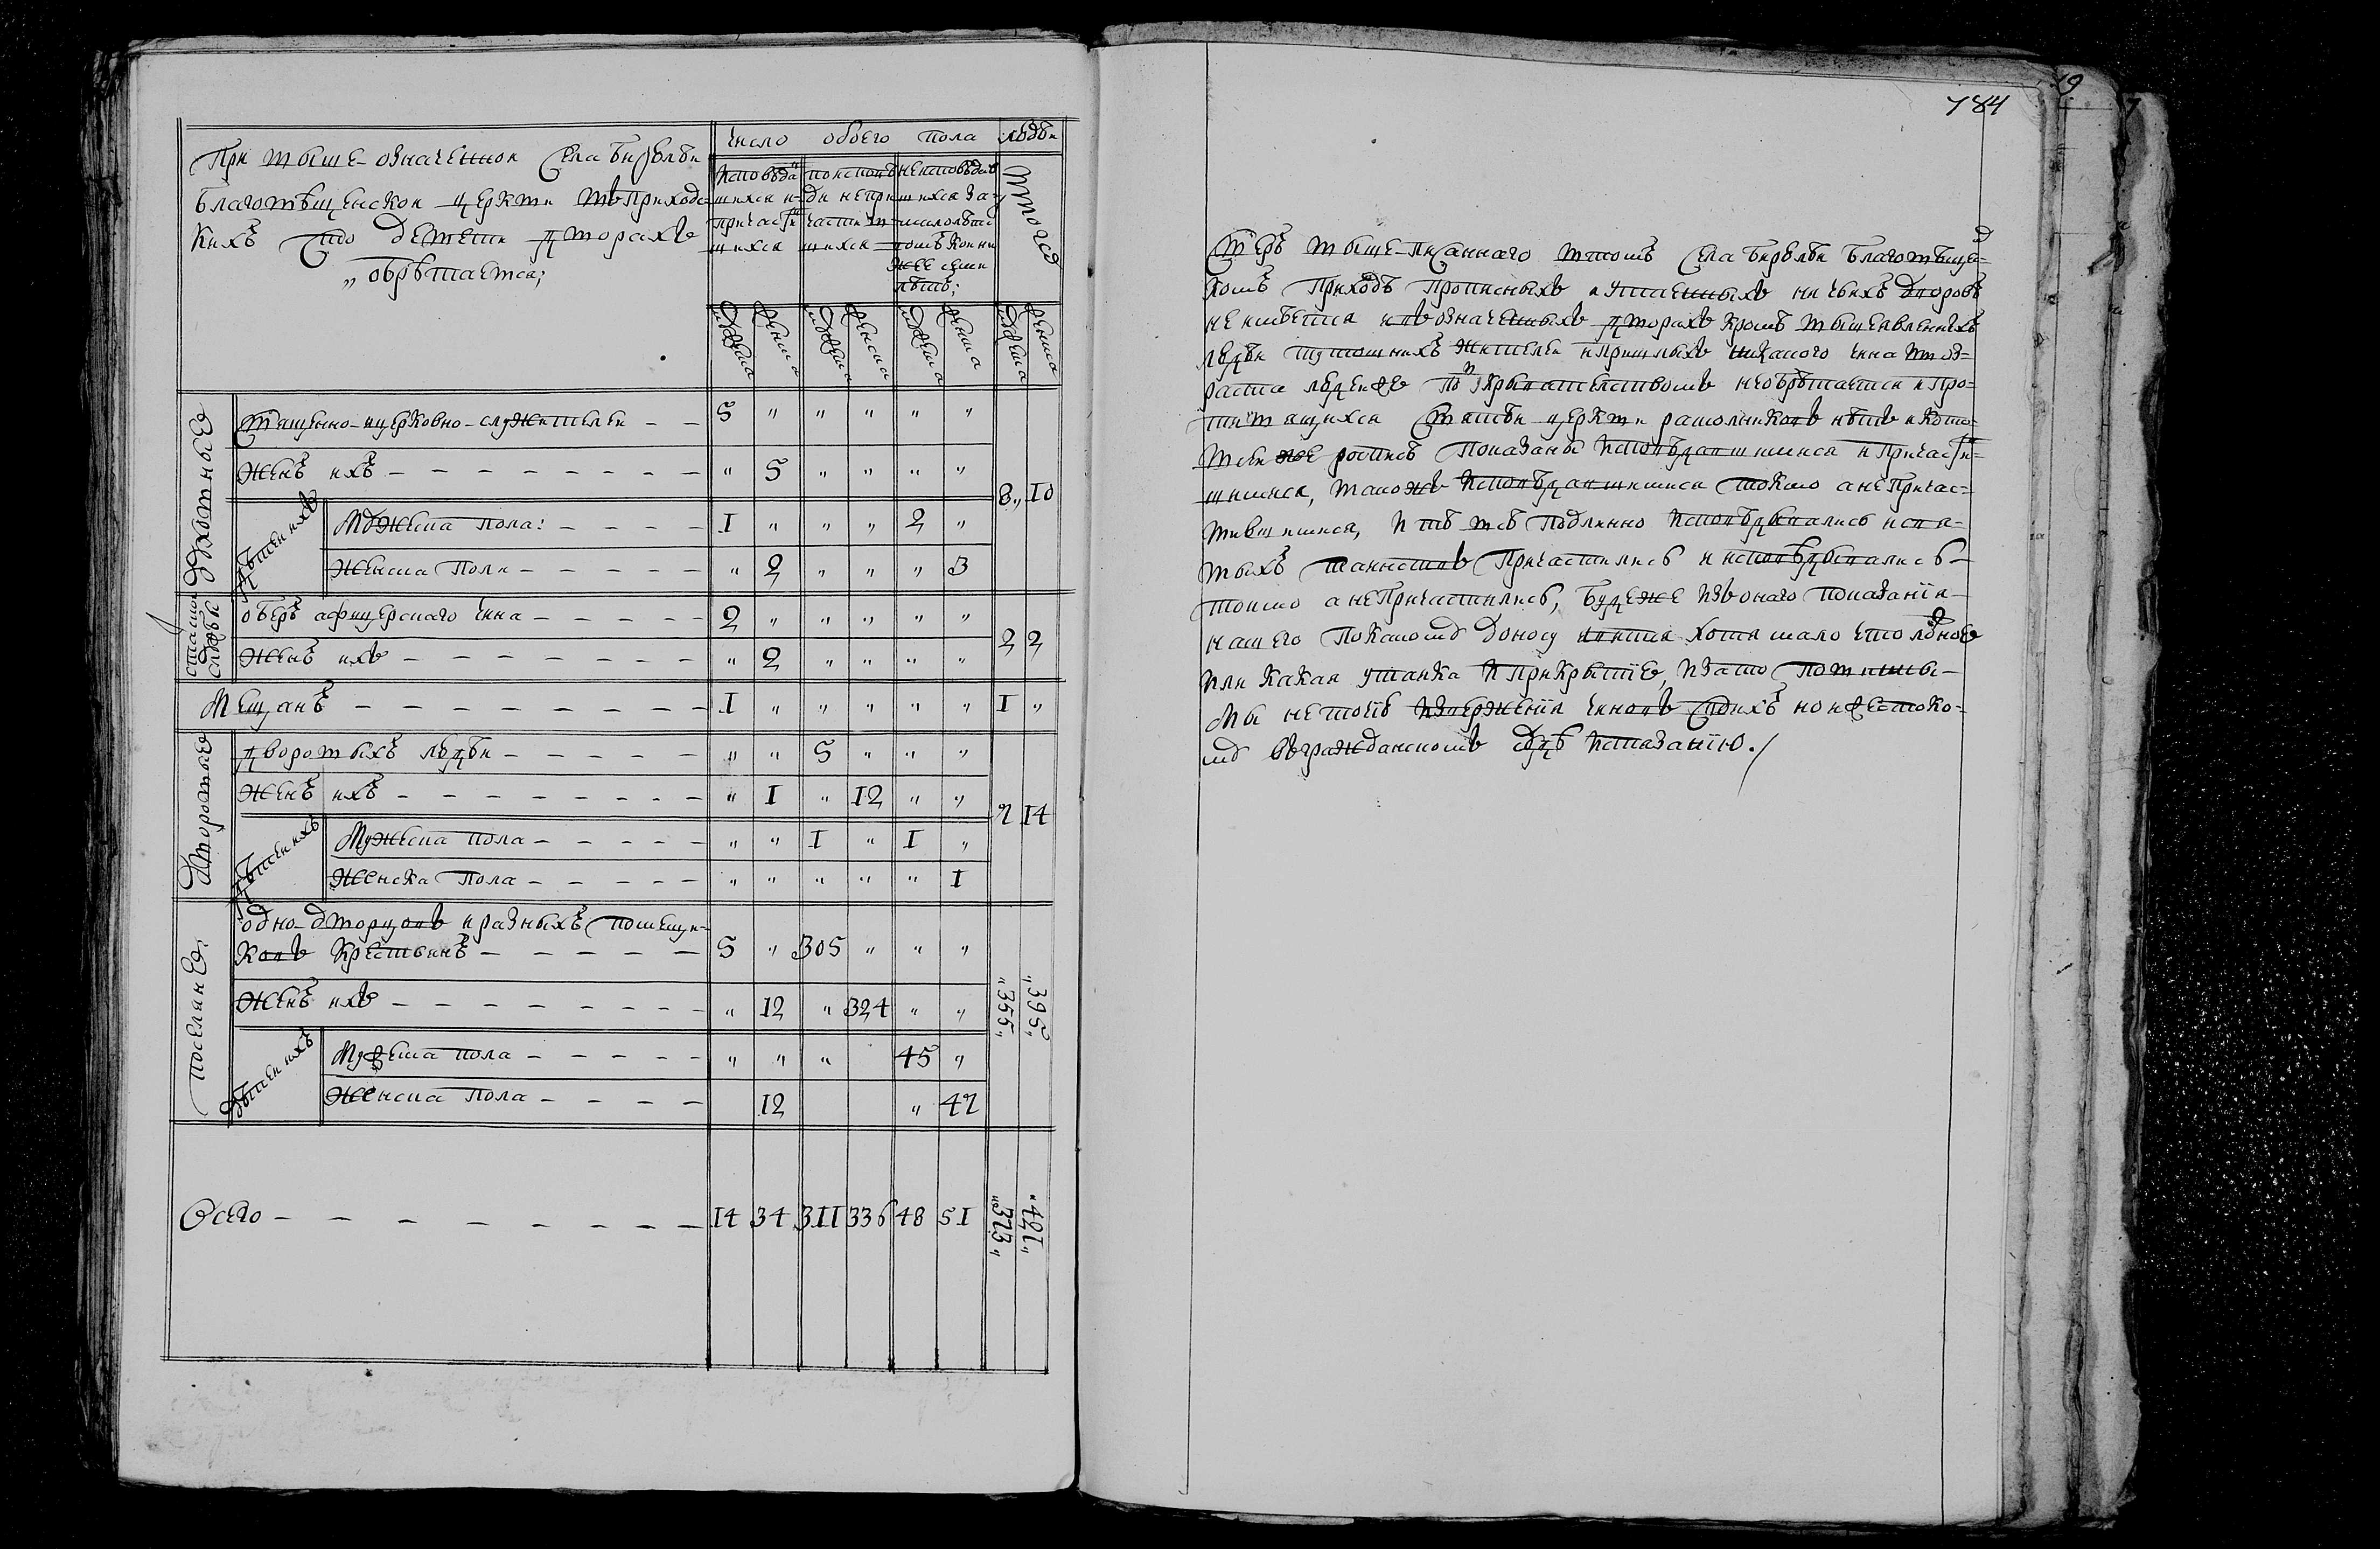 При выше-означенной села Бирѣльи
Благовѣщенской церкви въ приходс-
кихъ дворахъ
„ обрѣтается;
Число обоего пола людѣи
исповѣдавшихся и причастившихся
по исповѣди не причастившихся
не исповѣдавшихся за малолѣтством
Итого
мужеска женска мужеска женска мужеска женска мужеска женска
Духовные
Священно-и церковно-служителеи — — 5 „ „ „ „ „
Женъ ихъ — — — — — — — — „ 5 „ „ „ „
8„ 10
дѣтеи ихъ
Мужеска пола: — — — — 1 „ „ „ 2 „
Женска пола — — — — — „ 2 „ „ „ 3
оберъ афицерскаго чина — — — — — 2 „ „ „ „ „
2 2
Женъ ихъ — — — — — — — „ 2 „ „ „ „
Мещанъ — — — — — — — — 1 „ „ „ „ „ 1 „
Дворовые
дворовыхъ людѣи — — — — — „ „ 5 „ „ „
Женъ ихъ — — — — — — — — „ 1 „ 12 „ „
7 14
дѣтеи ихъ
Мужеска пола — — — — — „ „ 1 „ 1 „
Женска пола — — — — — „ „ „ „ „ 1
поселяне
одно-дворцовъ и разныхъ помещи-
ковъ крестьянъ — — — — — 5 „ 305 „ „ „
Женъ ихъ — — — — — — — „ 12 „ 324 „ „
„355„ „395„
дѣтеи ихъ
Мужеска пола — — — — „ „ „ 45 „
Женска пола — — — — 12 „ 47
Всего — — — — — — — — 14 34 311 336 48 51 „373„ „421„
784
Сверъ выше-писаннаго в томъ села Бирѣльи Благовѣщен-
скомъ приходѣ прописныхъ и утаенныхъ ни чьихъ дворовъ
не имѣется и въ означенныхъ дворахъ кромѣ вышеявленныхъ
людѣи тутошнихъ жителеи и пришлыхъ никакого чина и воз-
раста людеи же под укрывателствомъ не обрѣтается и про-
тивящихся святѣи церкви раскольниковъ нѣтъ и кото-
рые росписѣ показаны исповѣдавшимися и причасти-
вшимися, такожъ исповѣдавшимися токмо а не причас-
тившимися, и тѣ всѣ подлинно исповѣдывались и свя-
тыхъ таинствъ причастились и исповѣдывались
токмо а не причастились, буде же из онаго показанія
нашего по какому доносу явится хотя мало что ложное
или какая утаика и прикрытіе, и за то повинны
мы не точію изверженія чиновъ своихъ но и жестоко-
му въ гражданскомъ судѣ истязанію./